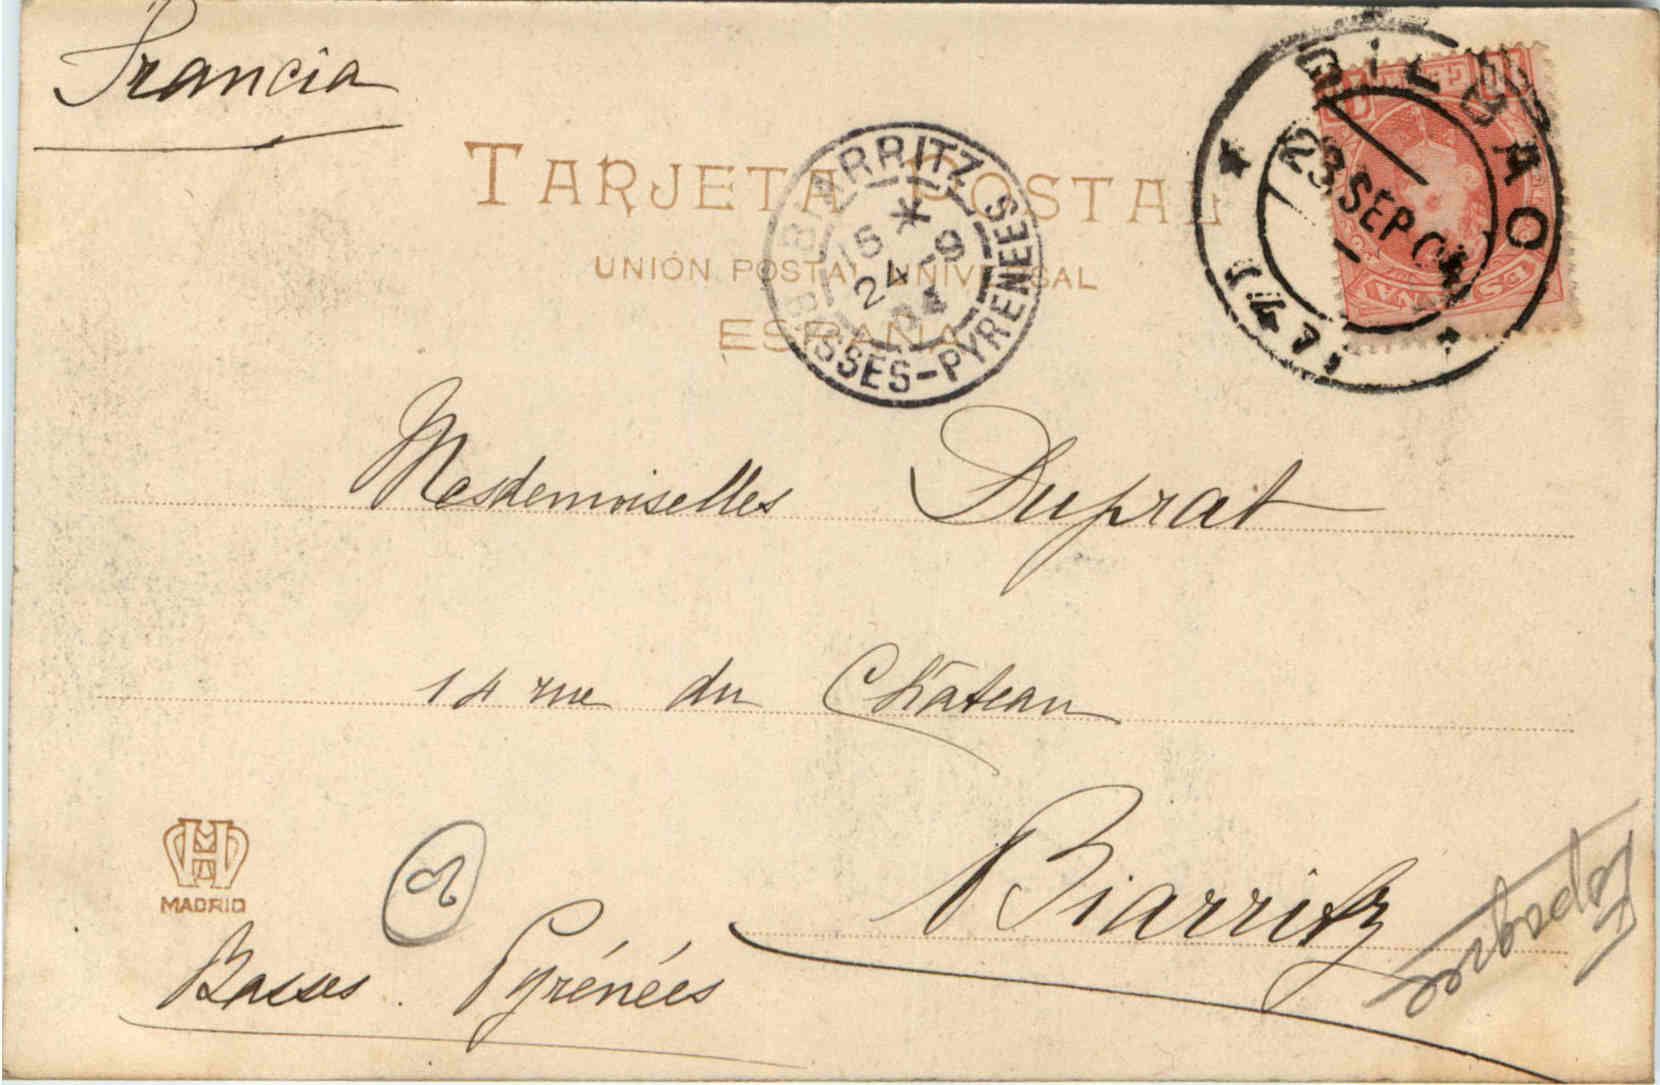 Francia
TARJETA POSTAL
UNIÓN POSTAL UNIVERSAL
ESPAÑA
BIARRITZ
15 * 9
24
04
BASSES-PYRENEES
BILBAO
23 SEP 04
Mesdemoiselles Duprat
14 rue du Château
Biarritz
MADRID
Basses Pyrénées